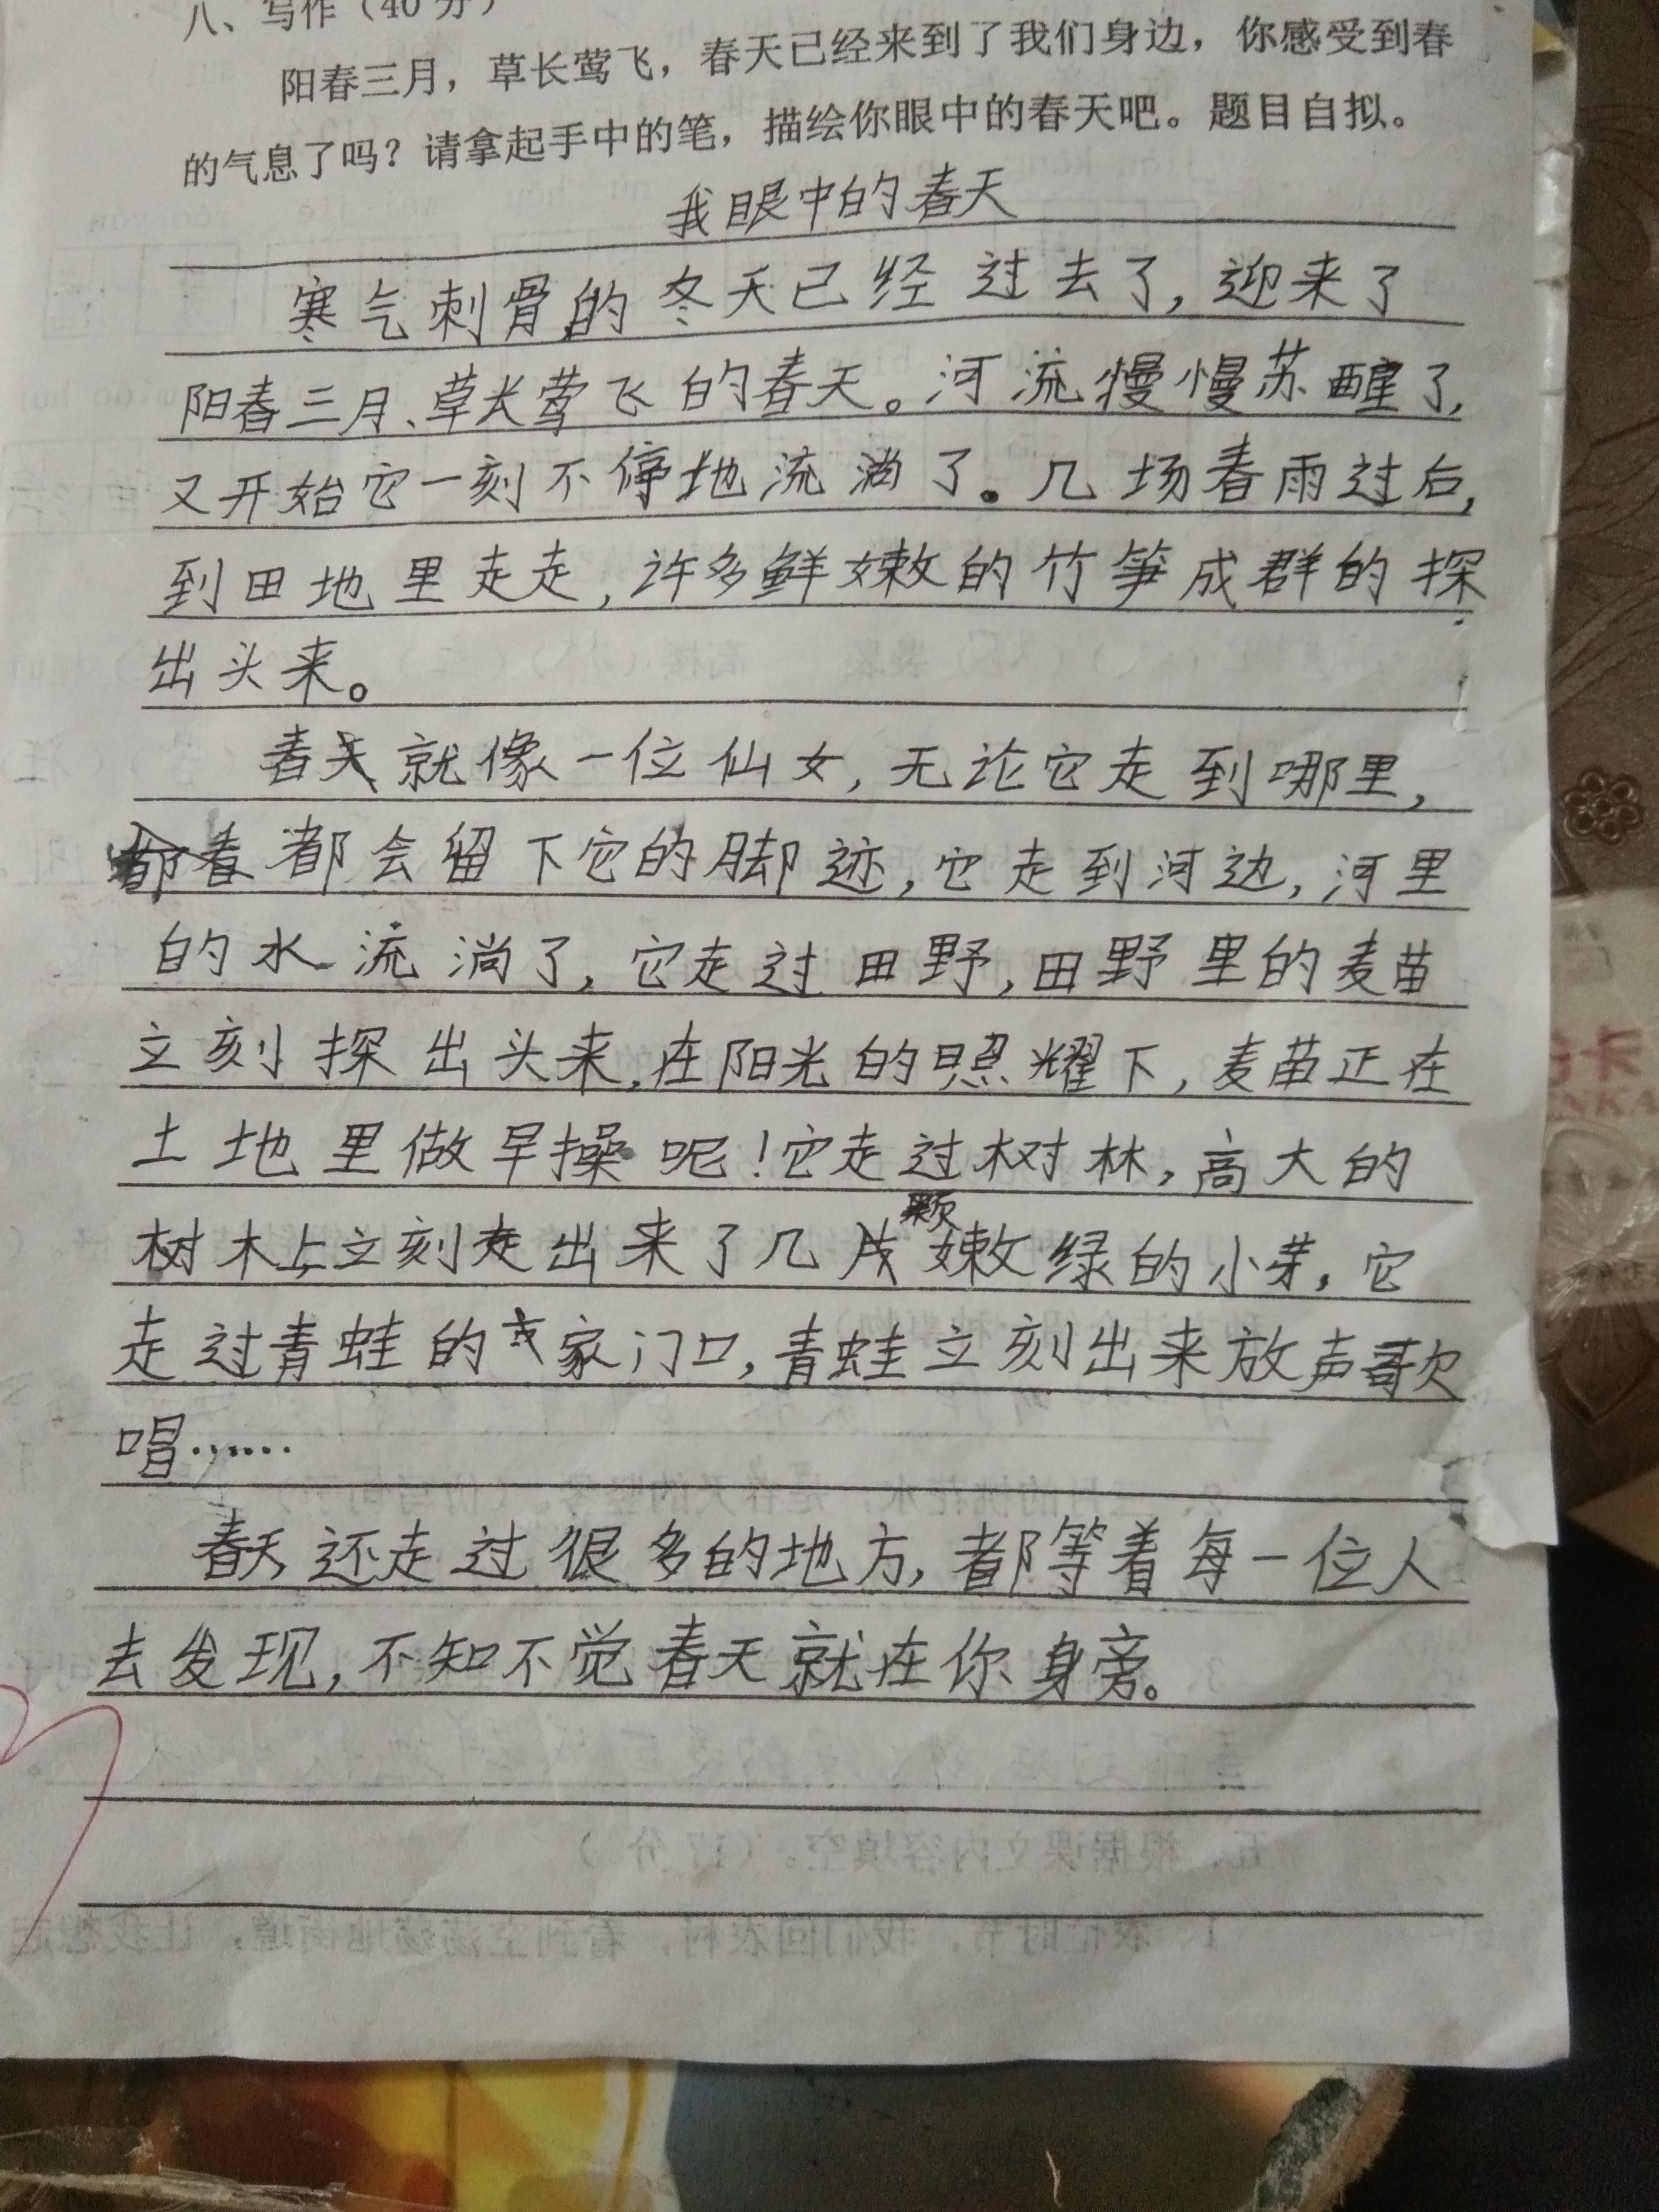 八、写作（40分）
阳春三月，草长莺飞，春天已经来到了我们身边，你感受到春
的气息了吗？请拿起手中的笔，描绘你眼中的春天吧。题目自拟。
我眼中的春天
寒气刺骨的冬天已经过去了，迎来了
阳春三月、草长莺飞的春天。河流慢慢苏醒了，
又开始它一刻不停地流淌了。几场春雨过后，
到田地里走走，许多鲜嫩的竹笋成群的探
出头来。
春天就像一位仙女，无论它走到哪里，
都会留下它的脚迹，它走到河边，河里
的水流淌了，它走过田野，田野里的麦苗
立刻探出头来，在阳光的照耀下，麦苗正在
土地里做早操呢！它走过树林，高大的
树木上立刻走出来了几颗嫩绿的小芽，它
走过青蛙的家门口，青蛙立刻出来放声歌
唱……
春天还走过很多的地方，都等着每一位人
去发现，不知不觉春天就在你身旁。